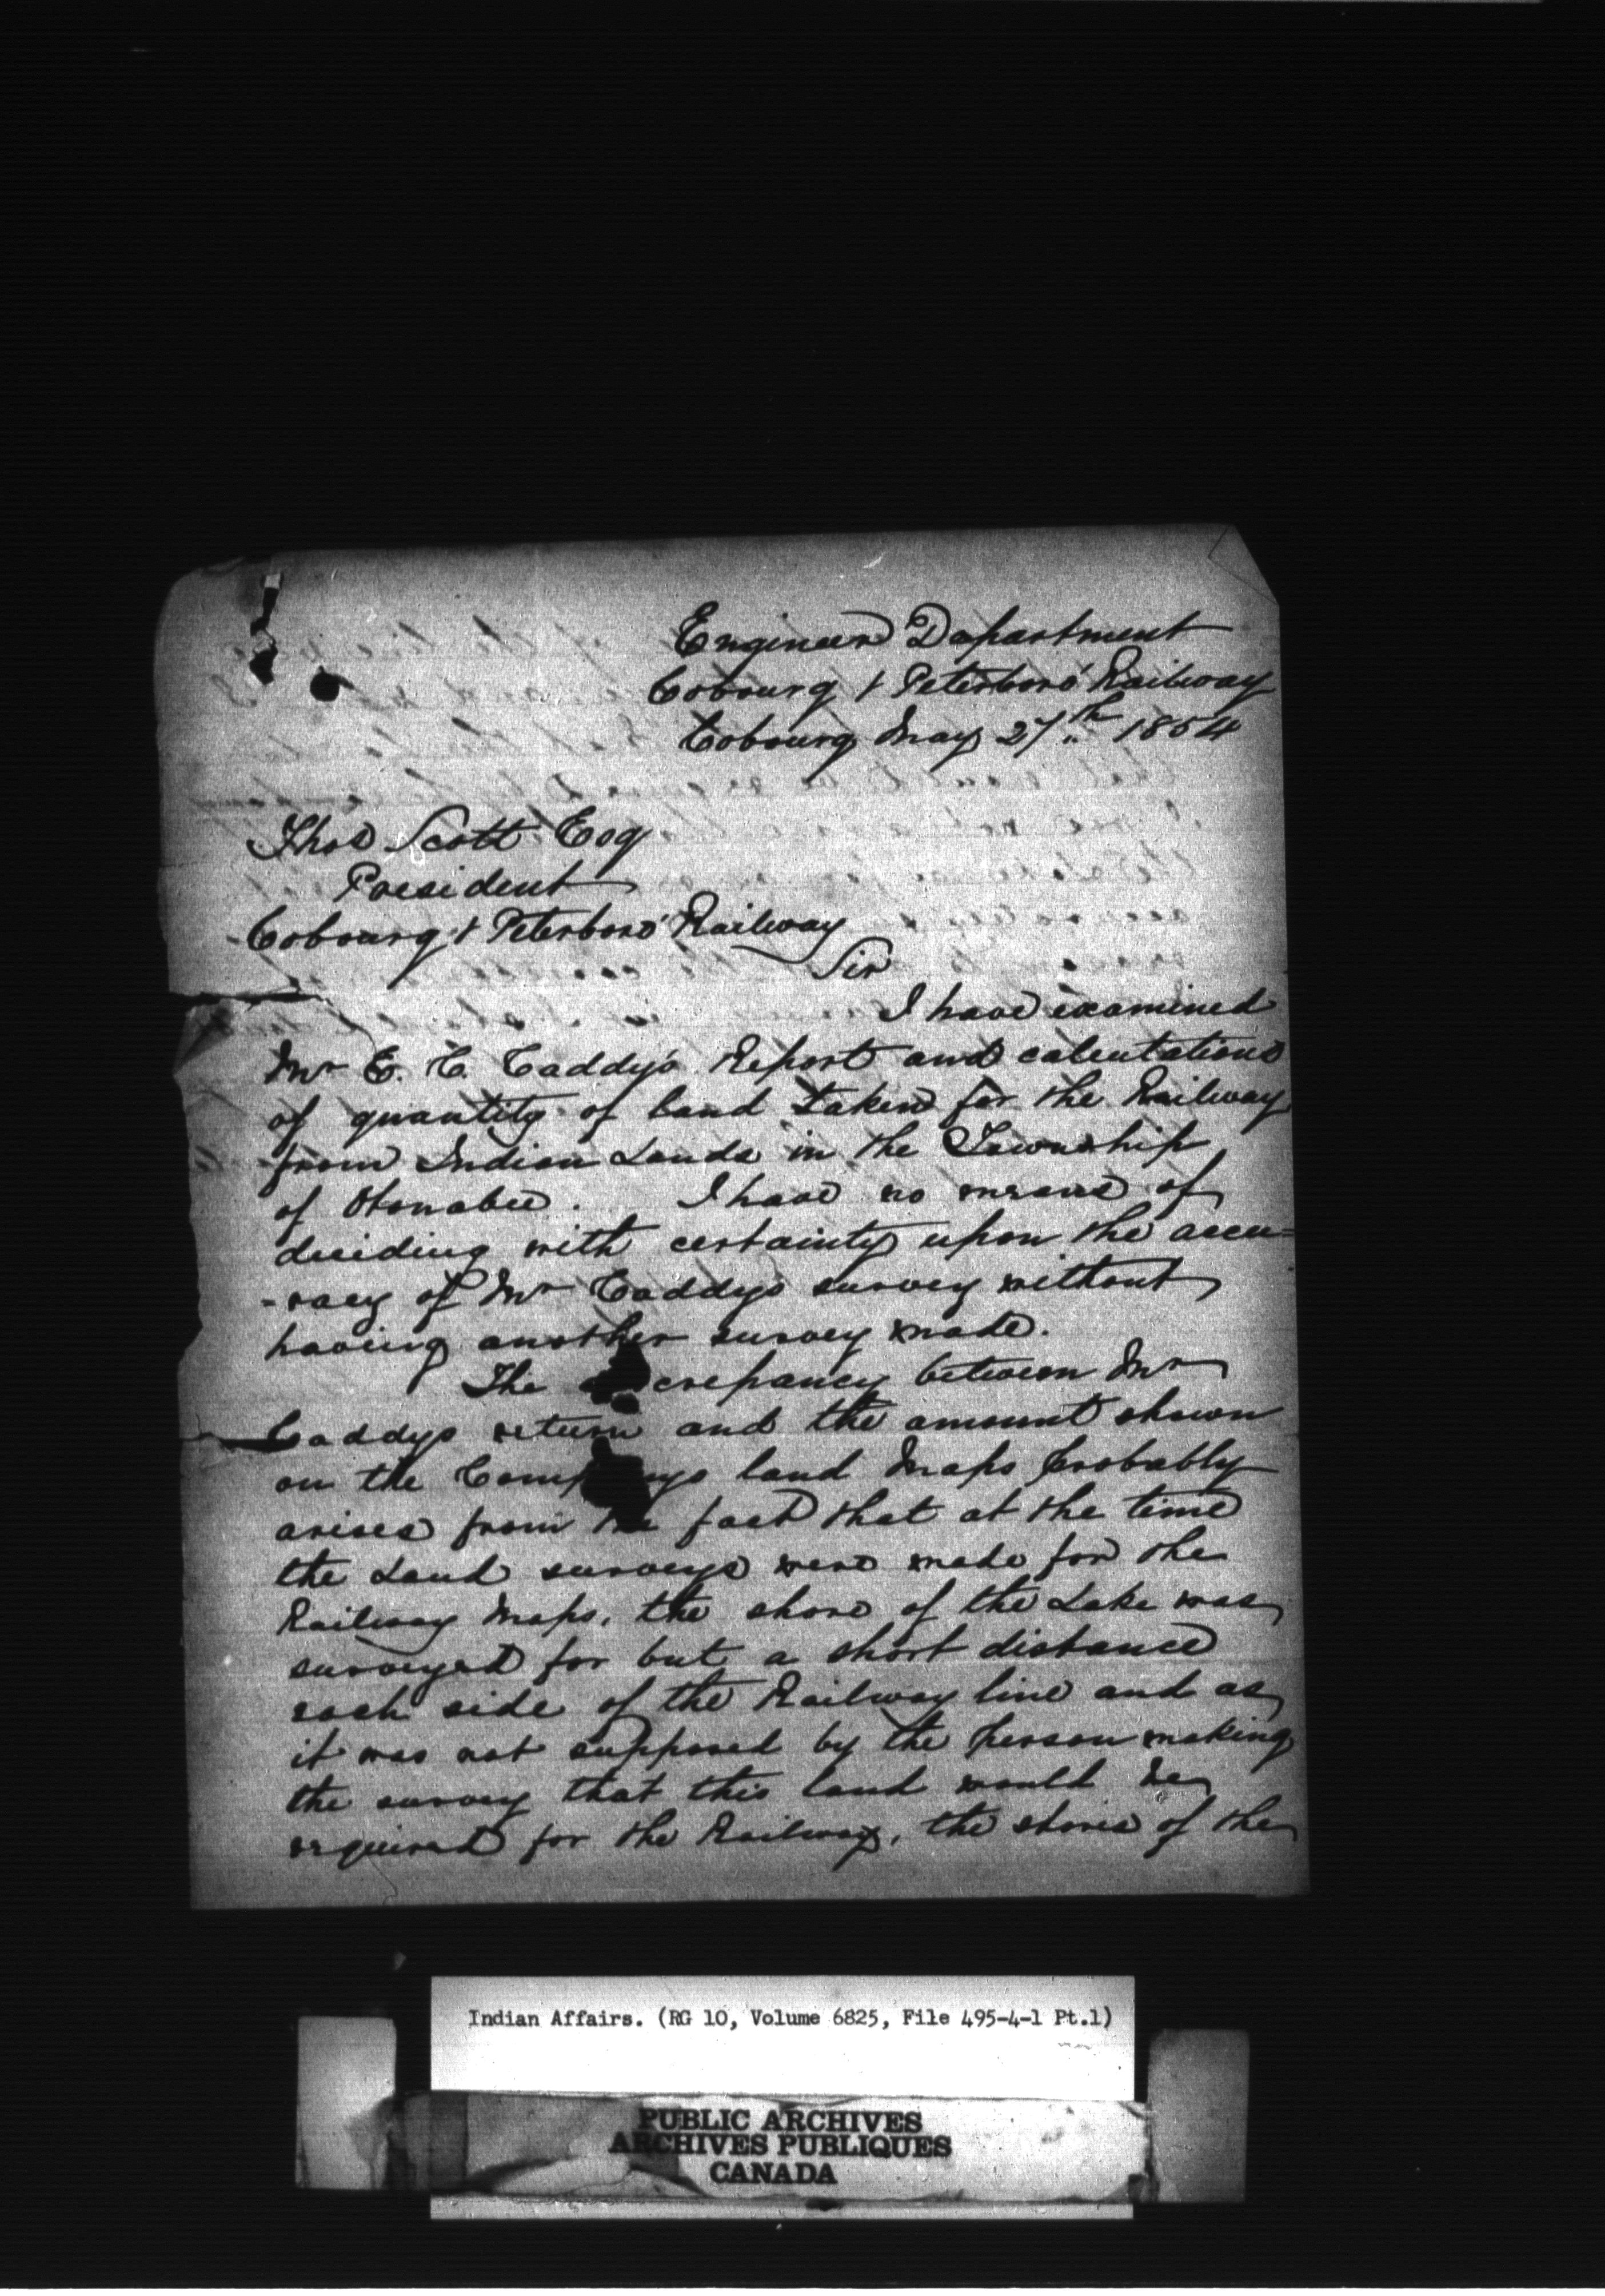 Engineer Department
Cobourg & Peterboro' Railway
Cobourg May 27th 1854
Thos Scott Esq
President
Cobourg & Peterboro' Railway
Sir
I have examined
Mr E. C. Caddy's Report and calculations
of quantity of land taken for the Railway
from Indian Lands in the Township
of Otonabee. I have no means of
deciding with certainty upon the accu=
-racy of Mr Caddys survey without
having another survey made.
The crepancy between Mr
Caddys return and the amount shown
on the Companys land Maps probably
arises from the fact that at the time
the Land surveys were made for the
Railway Maps, the shore of the Lake was
surveyed for but a short distance
each side of the Railway line and as
it was not supposed by the person making
the survey that this land would be
required for the Railway, the shores of the
Indian Affairs. (RG 10, Volume 6825, File 495-4-1 Pt.1)
PUBLIC ARCHIVES
ARCHIVES PUBLIQUES
CANADA